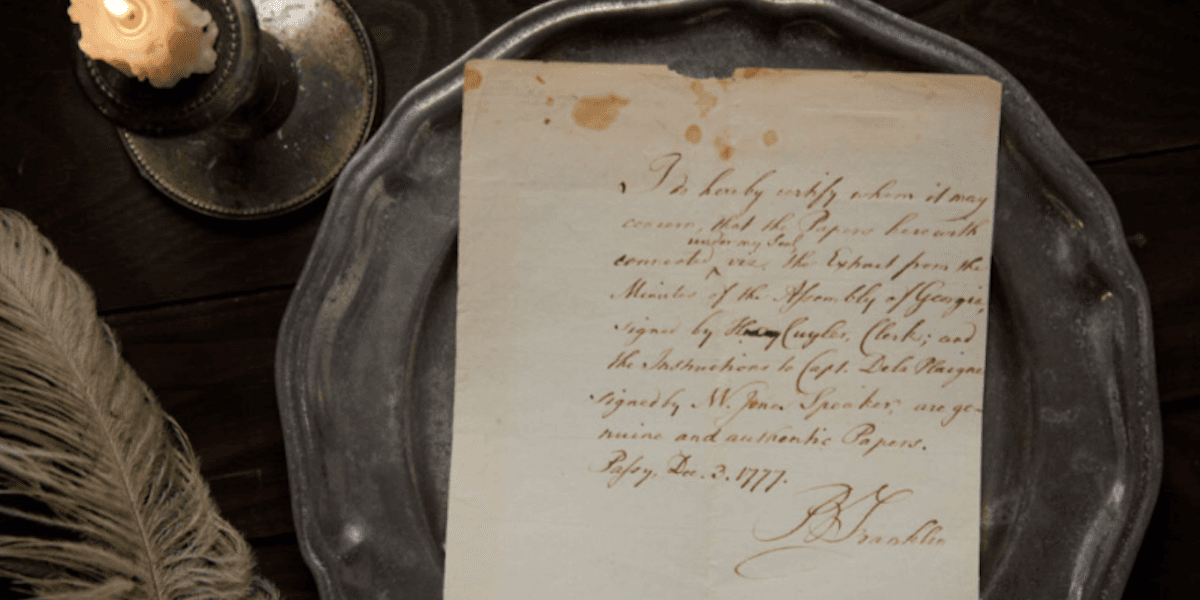 I do hereby certify whom it may
concern, that the Papers herewith
under my Seal
connected ^ viz. the Extract from the
Minutes of the Assembly of Georgia,
signed by Cuyler, Clerk; and
the Instructions to Capt. Dela Plaigne
signed by N. W. Jones Speaker, are ge-
nuine and authentic Papers.
Passy, Dec. 3. 1777.
B Franklin